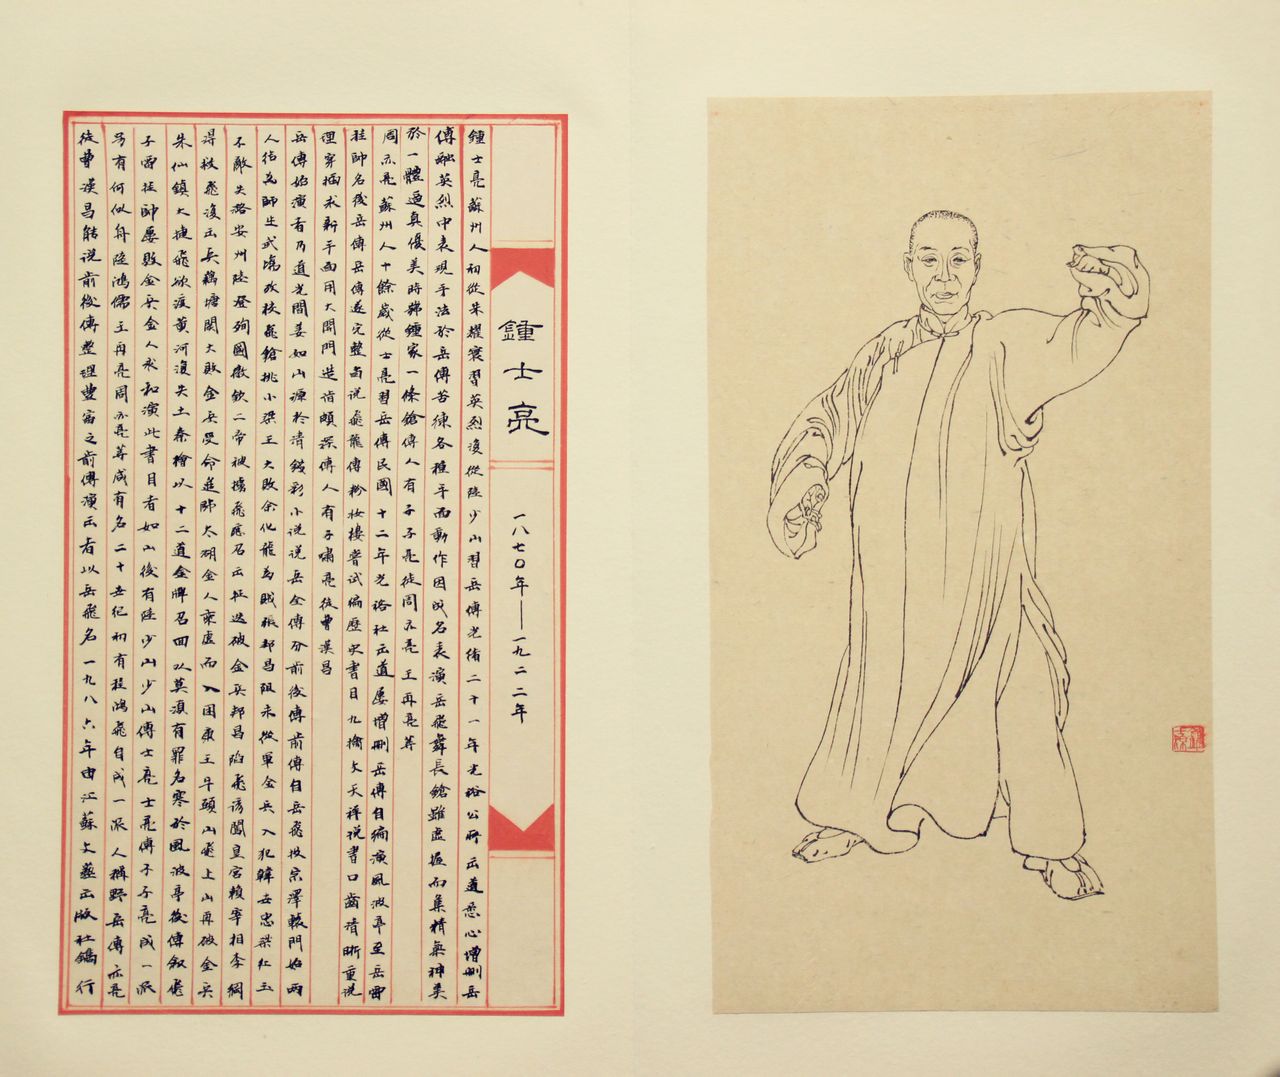 鍾士亮
一八七〇年——一九二二年
鍾士亮蘇州人初從朱耀寰習英烈後從陸少山習岳傳光緒二十一年光裕公所出道悉心增刪岳
傳融英烈中表現手法於岳傳苦練各種手面動作因成名表演岳飛舞長鎗雖虛擬而集精氣神美
於一體逼真優美時稱鍾家一條鎗傳人有子子亮徒周亦亮王再亮等
周亦亮蘇州人十餘歲從士亮習岳傳民國十二年光裕社出道屢增刪岳傳自編演風波亭至岳雷
挂帥名後岳傳岳傳遂完整另說飛龍傳粉妝樓嘗試編歷史書目九擒文天祥說書口齒清晰重說
理穿插求新手面用大開門造詣頗深傳人有子嘯亮徒曹漢昌
岳傳始演者乃道光間姜如山源於清錢彩小說說岳全傳分前後傳前傳自岳飛投宗澤轅門始兩
人結為師生武場放秩飛鎗挑小梁王大敗余化龍為賊張邦昌阻未從軍金兵入犯韓世忠梁紅玉
不敵失潞安州陸登殉國徽欽二帝被擄飛應召出征迭破金兵邦昌陷飛謗闖皇宮賴宰相李綱
得救飛復出兵藕塘關大敗金兵受命進師太湖金人乘虛而入困康王牛頭山飛上山再破金兵
朱仙鎮大捷飛欲渡黃河復失土秦檜以十二道金牌召回以莫須有罪名害於風波亭後傳叙飛
子雷挂帥屢敗金兵金人求和演此書目者如山後有陸少山少山傳士亮士亮傳子子亮成一派
另有何似舟陸鴻儒王再亮周亦亮等咸有名二十世紀初有程鴻飛自成一派人稱野岳傳亦亮
徒曹漢昌能說前後傳整理豐富之前傳演出者以岳飛名一九八六年由江蘇文藝出版社鐫行